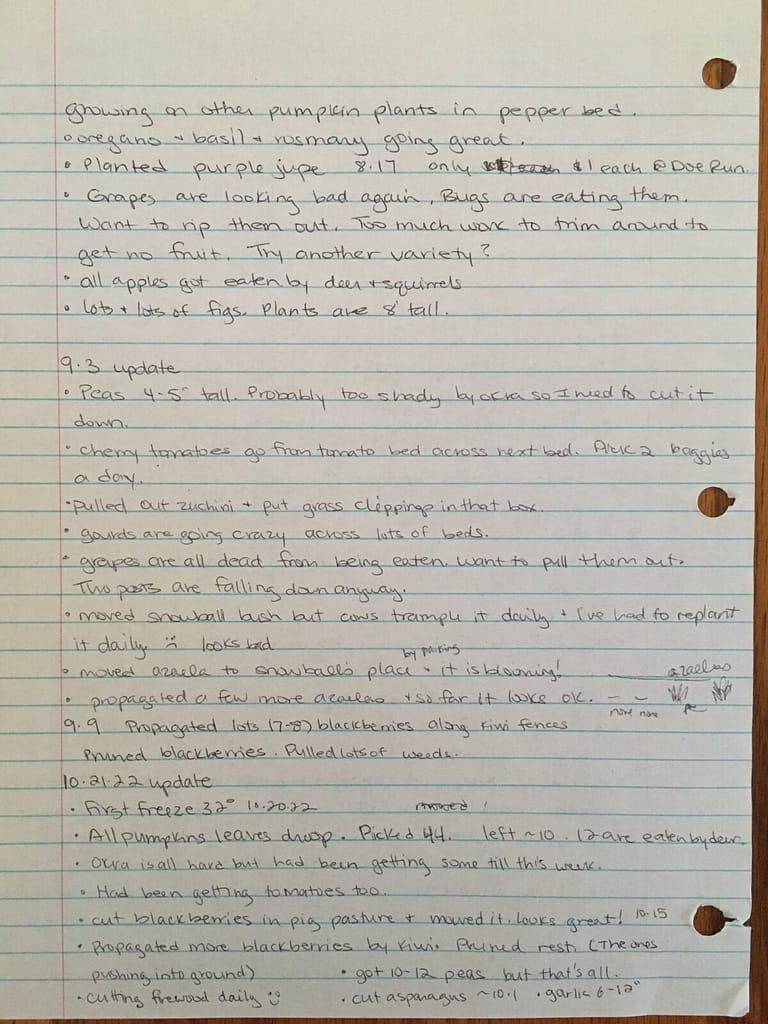 growing on other pumpkin plants in pepper bed.
• oregano + basil + rosmary going great.
• Planted purple jupe 8.17 only $1 each @ Doe Run.
• Grapes are looking bad again, Bugs are eating them.
Want to rip them out. Too much work to trim around to
get no fruit. Try another variety?
• all apples got eaten by deer + squirrels
• lots + lots of figs. Plants are 8' tall.
9.3 update
• Peas 4-5" tall. Probably too shady by okra so I need to cut it
down.
• cherry tomatoes go from tomato bed across next bed. Pick 2 baggies
a day.
• pulled out zuchini + put grass clippings in that box.
• gourds are going crazy across lots of beds.
• grapes are all dead from being eaten. Want to pull them out.
Two posts are falling down anyway.
• moved snowball bush but cows trample it daily + I've had to replant
it daily :( looks bad
• moved azaela to snowball's place + it is blooming! azaelas
• propagated a few more azaelas + so far it looks ok.
new new
9.9 Propagated lots (7-8) blackberries along kiwi fences
Pruned blackberries. Pulled lots of weeds.
10.21.22 update
• First freeze 32° 10.20.22
• All pumpkins leaves droop. Picked 44. left ~10. 12 are eaten by deer.
• Okra is all hard but had been getting some till this week.
• Had been getting tomatoes too.
• cut blackberries in pig pasture + mowed it. looks great! 10.15
• Propagated more blackberries by kiwi. Pruned rest. (The ones
pushing into ground) • got 10-12 peas but that's all.
• cutting firewood daily :) • cut asparagus ~10.1 • garlic 6-12"